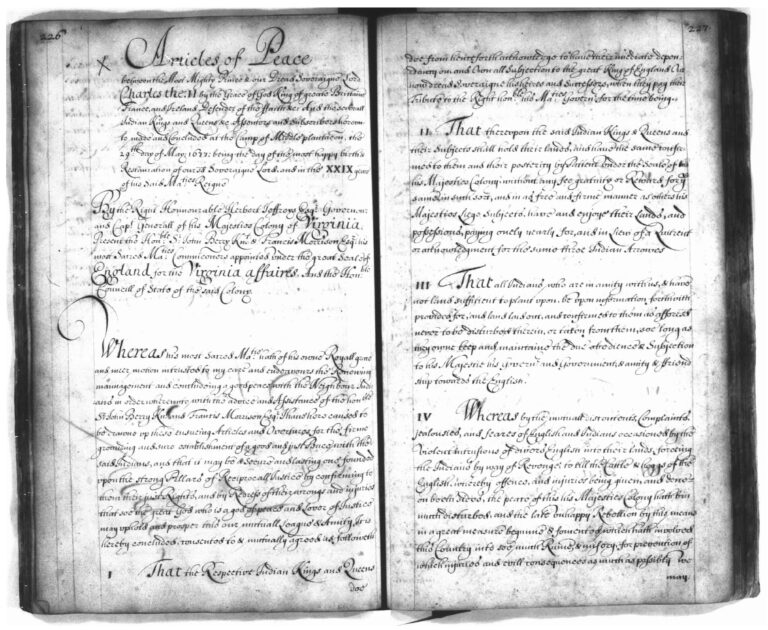 226
X Articles of Peace
between the Most Mighty Prince & our Dread Soveraigne Lord
Charles the II by the Grace of God King of greate Brittaine
France and Ireland Defender of the Faith &c: And the severall
Indian Kings and Queens &c Assentors and Subscribers hereunto
made and Concluded at the Camp of Middle plantacon, the
29th day of May, 1677: being the day of the most happy birth &
Restauration of our sd Soveraigne Lord, and in the XXIX yeare
of his said Maties Reigne
By the Right Honourable Herbert Jeffreys Esqr Governor
and Capt Generall of his Majesties Colony of Virginia,
Present the Honble Sr John Berry Knt & Francis Morrison Esqr his
most Sacred Maties Commicioners appointed under the great Seale of
England, for the Virginia affaires. And the Honble
Councill of State of the said Colony
Whereas his most Sacred Matie hath of his owne Royall grace
and meer motion intrusted to my care and endeavours the Renewing
management and concluding a good peace with the Neighbour Indi
ans in order whereunto with the advice and Assistance of the honble
Sr John Berry Knt and Francis Morrison Esqr I have here caused to
be drawne up these ensueing Articles and Overtures, for the firme
grounding and sure establishment of a good and just Peace with the
said Indians, and that it may be a Secure and lasting one founded
upon the strong Pillars of Reciprocall Justice by confirming to
them their just Rights, and by Redress of their wrongs and injuries
that soe the great God who is a god of peace and Lover of Justice
may uphold and prosper this our mutuall league & Amity, It is
hereby concluded, consented to & mutually agreed as followeth
I That the Respective Indian Kings and Queens
doe
227
doe from henceforth acknowledge to have their imediate depen
dancy on, and own all Subjection to the great King of England, Our
now dread Soveraigne his heires and Successors, when they pay their
Tribute to the Right honble his Maties Governr for the time being.
II That thereupon the said Indian Kings & Queens and
their Subjects shall hold their lands, and have the same confir-
med to them and their posterity by Patent under the Seale of this
his Majesties Colony, without any fee gratuity or Reward for ye
same, in such sort, and in as free and firme manner as others his
Majesties Liege Subjects, have and enjoye their Lands, and
possessions, paying onely yearly for, and in liew of a Quitrent
or acknowledgment for the same three Indian Arrowes
III That all Indians who are in amity with us, & have
not land sufficient to plant upon, be upon information forthwith
provided for, and land laid out, and confirmed to them as afforesd
never to be disturbed therein, or taken from them, soe long as
they owne keep and maintaine the due obedience & Subjection
to his Majestie his governr and Government, & amity & ffriend
ship towards the English.
IV Whereas by the mutuall discontents, Complaints,
jealousies, and feares of English and Indians occasioned by the
Violent intrusions of divers English into their lands, forceing
the Indians by way of Revenge, to kill the Cattle & hoggs of the
English, whereby offence, and injuries being given, and done
on both sides, the peace of this his Majesties Colony hath bin
much disturbed, and the late unhappy Rebellion by this means
in a great measure begunne & fomented, which hath involved
this Country into soe much Ruine, & misery, for prevention of
which injuries and evill consequences as much as possibly we
may